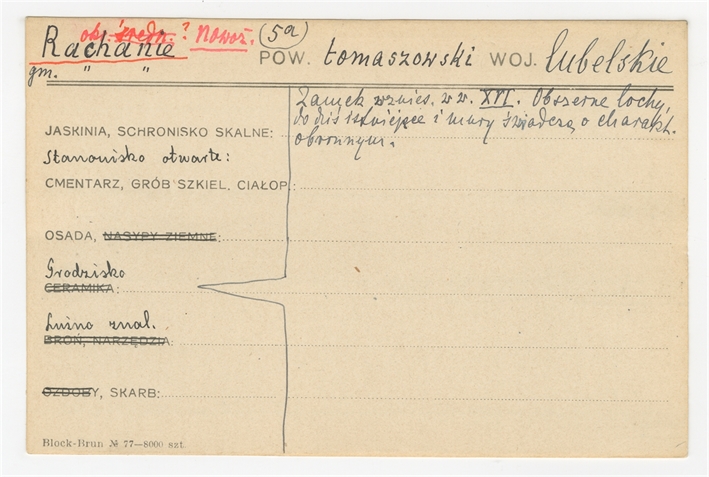 ok. średn.? Nowoż. 5a
Rachanie POW. tomaszowski WOJ. lubelskie
gm. " "
Zamek wznies. w w. XVI. Obszerne lochy,
do dziś istniejące i mury świadczą o charakt.
obronnym.
JASKINIA, SCHRONISKO SKALNE:
Stanowisko otwarte:
CMENTARZ, GRÓB SZKIEL. CIAŁOP.:
OSADA, NASYPY ZIEMNE:
Grodzisko
CERAMIKA:
Luźno znal.
BROŃ, NARZĘDZIA:
OZDOBY, SKARB:
Block-Brun № 77—8000 szt.